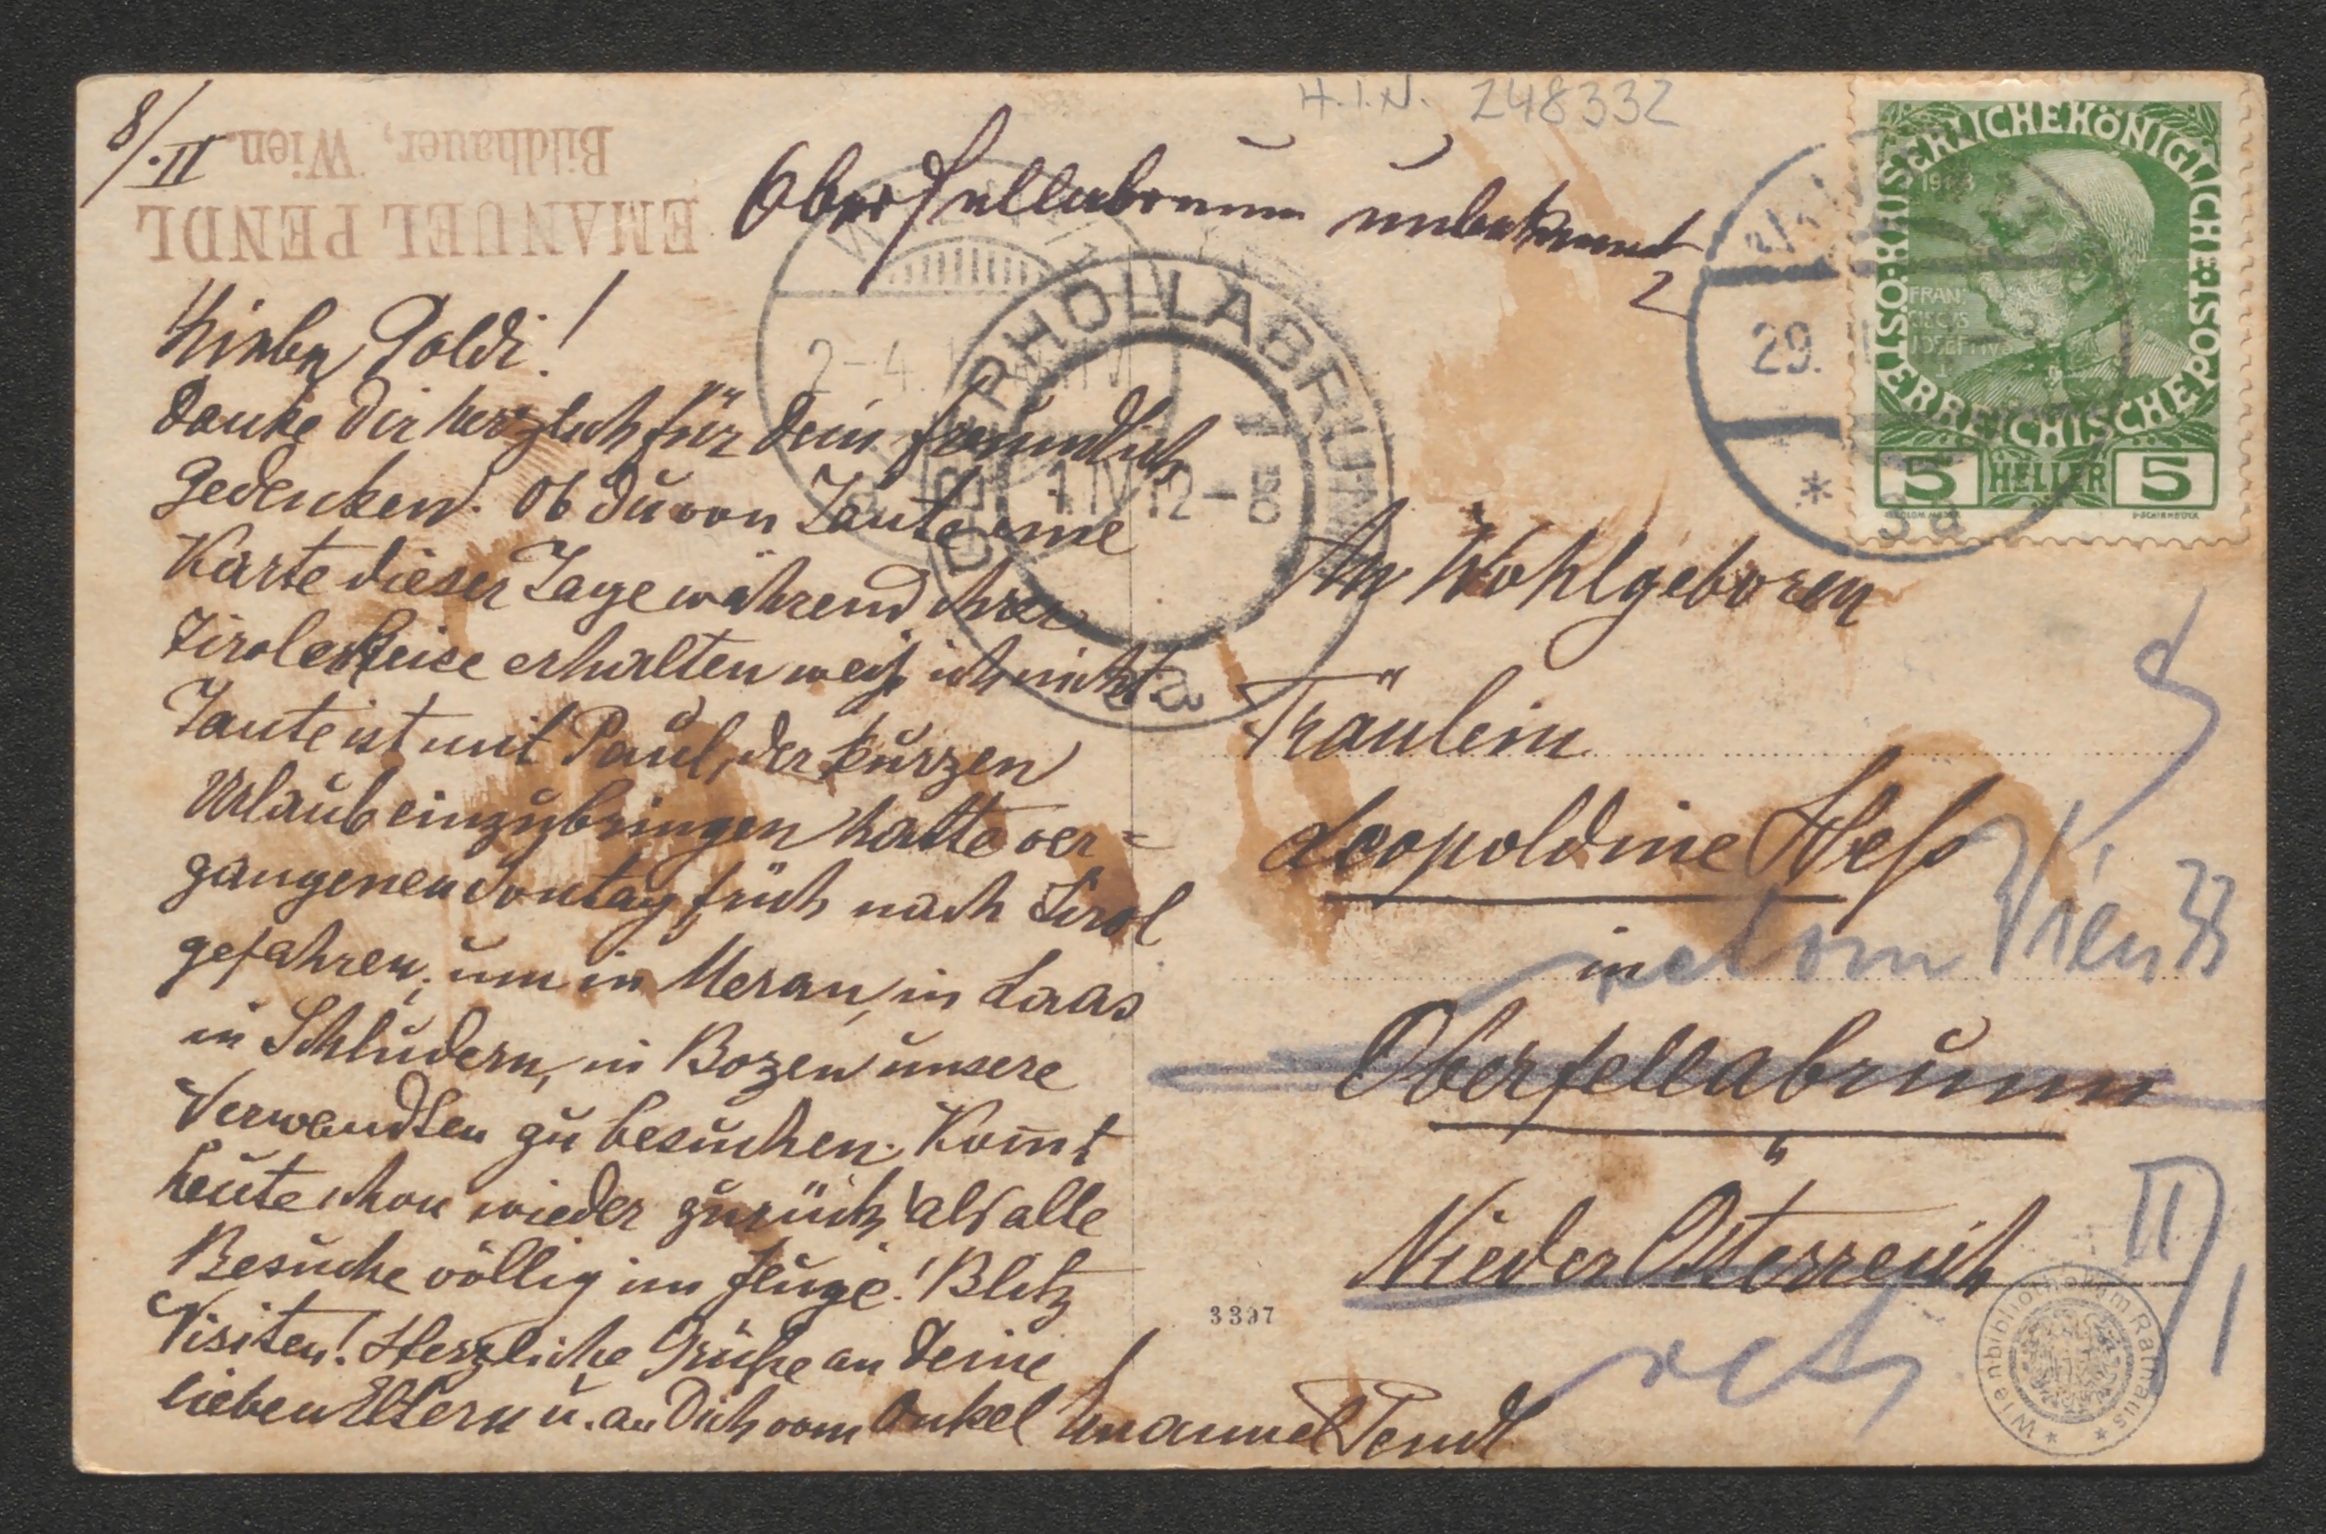 H.I.N. 248332
8/II.
EMANUEL PENDL
Bildhauer, Wien.
Oberfellabrunn unbekannt
OBERHOLLABRUNN
1 IV 12-8
3a
2-4.
WIEN
29.
* 3a
KAISERLICHE KÖNIGLICHE ÖSTERREICHISCHE POST
1908
FRANZ
JOSEPHVS
I
5 HELLER 5
Liebe Poldi!
Danke Dir herzlich für Dein freundlich
Gedenken. Ob Du von Tante eine
Karte dieser Tage während ihrer
Tiroler Reise erhalten weiß ich nicht.
Tante ist mit Paul, der kurzen
Urlaub einzubringen hatte ver=
gangenen Sontag früh nach Tirol
gefahren, um in Meran, in Laas
in Schludern, in Bozen unsere
Verwandten zu besuchen. Kom̄t
heute schon wieder zurück als alle
Besuche völlig im Fluge! Blitz
Visiten! Herzliche Grüße an Deine
lieben Eltern u. an Dich vom Onkel Emanuel Pendl
An Wohlgeboren
Fräulein
Leopoldine Heß
in
Oberfellabrunn
Nieder Österreich
Wien
II/1
ret
3397
Wienbibliothek im Rathaus